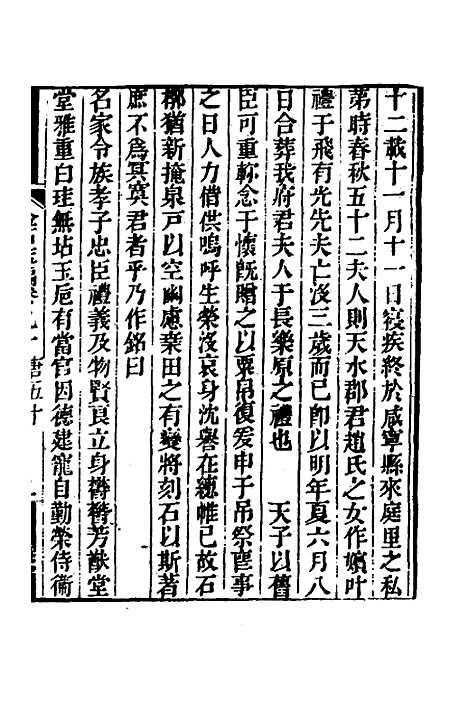 十二載十一月十一日寢疾終於咸寧縣來庭里之私
第時春秋五十二夫人則天水郡君趙氏之女作嬪叶
禮于飛有光先夫亡沒三歲而已卽以明年夏六月八
日合葬我府君夫人于長樂原之禮也　　天子以舊
臣可重軫念于懷旣贈之以粟帛復爰申于吊祭葬事
之日人力借供嗚呼生榮沒哀身沈譽在繐帷已故石
槨猶新掩泉戶以空幽慮桒田之有變將刻石以斯著
庶不爲冥寞君者乎乃作銘曰
名家令族孝子忠臣禮義及物賢良立身欝欝芳猷堂
堂雅重白珪無玷玉巵有當官因德建寵自勤榮侍衞
金石萃編卷九十唐五十